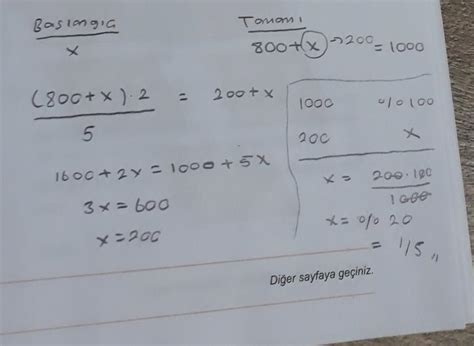 Başlangıç
x
Tamamı
800+x →200 = 1000
(800+x).2 / 5 = 200+x
1600+2x = 1000+5x
3x = 600
x = 200
1000 %100
200 x
x = 200.100 / 1000
x = %20
= 1/5 ,,
Diğer sayfaya geçiniz.